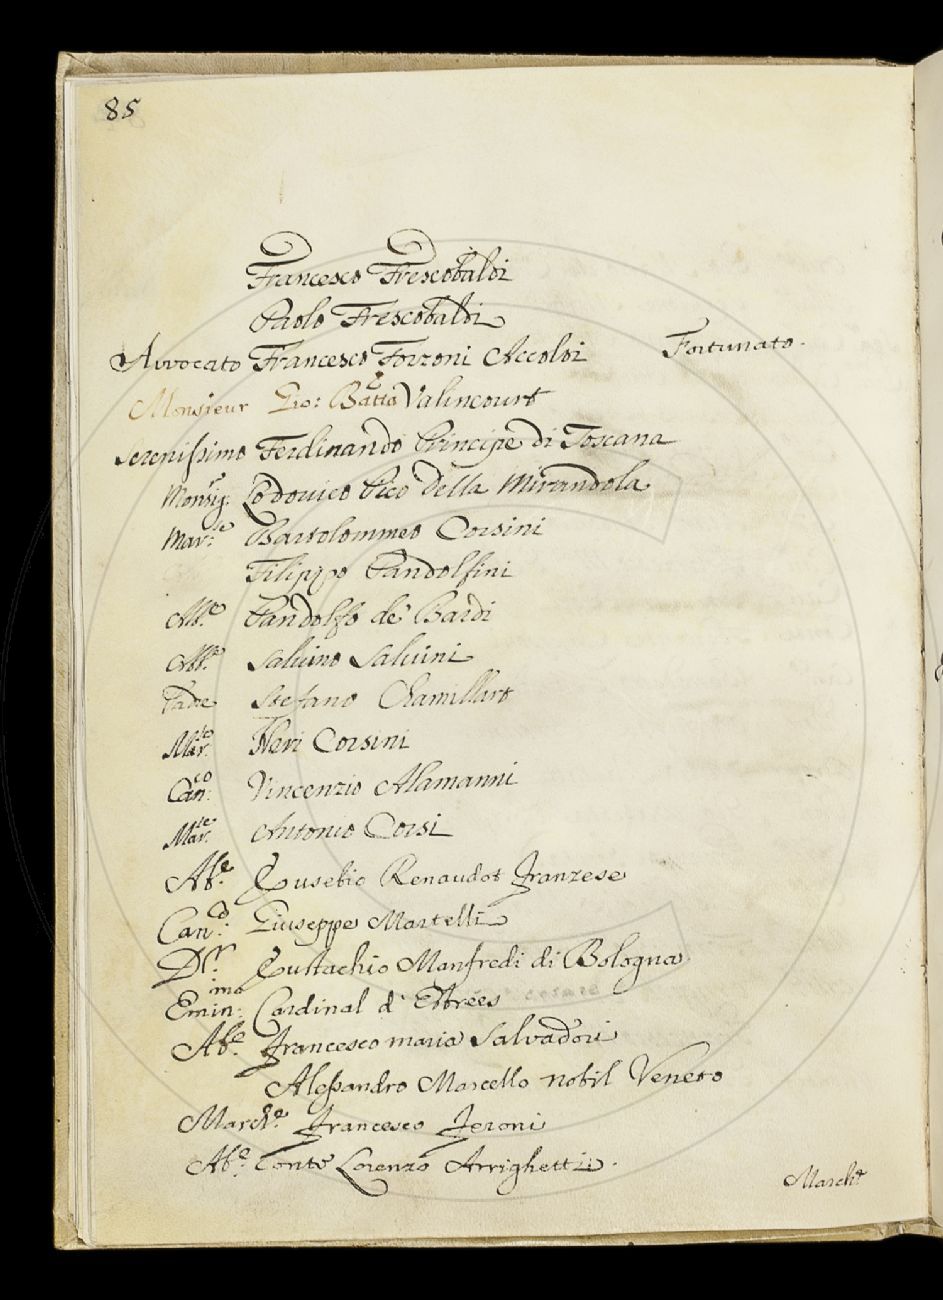 85
Francesco Frescobaldi
Paolo Frescobaldi
Avvocato Francesco Forzoni Accolti Fortunato.
Monsieur Gio: Batta Valincourt
Serenissimo Ferdinando Principe di Toscana
Monsig.r Lodovico Pico della Mirandola
Mar:se Bartolommeo Corsini
Filippo Pandolfini
Ab.e Pandolfo de Bardi
Ab.e Salvino Salvini
Pade Stefano Chamillart
Mar.se Neri Corsini
Can:co Vincenzio Alamanni
Mar.se Antonio Corsi
Ab.e Eusebio Renaudot Franzese
Can:co Giuseppe Martelli
D.r Eustachio Manfredi di Bologna
Emin:mo Cardinal d'Etrées
Ab.e Francesco maria Salvadori
Alessandro Marcello nobil Veneto
March.e Francesco Feroni
Ab.e Conte Lorenzo Arrighetti.
March.e